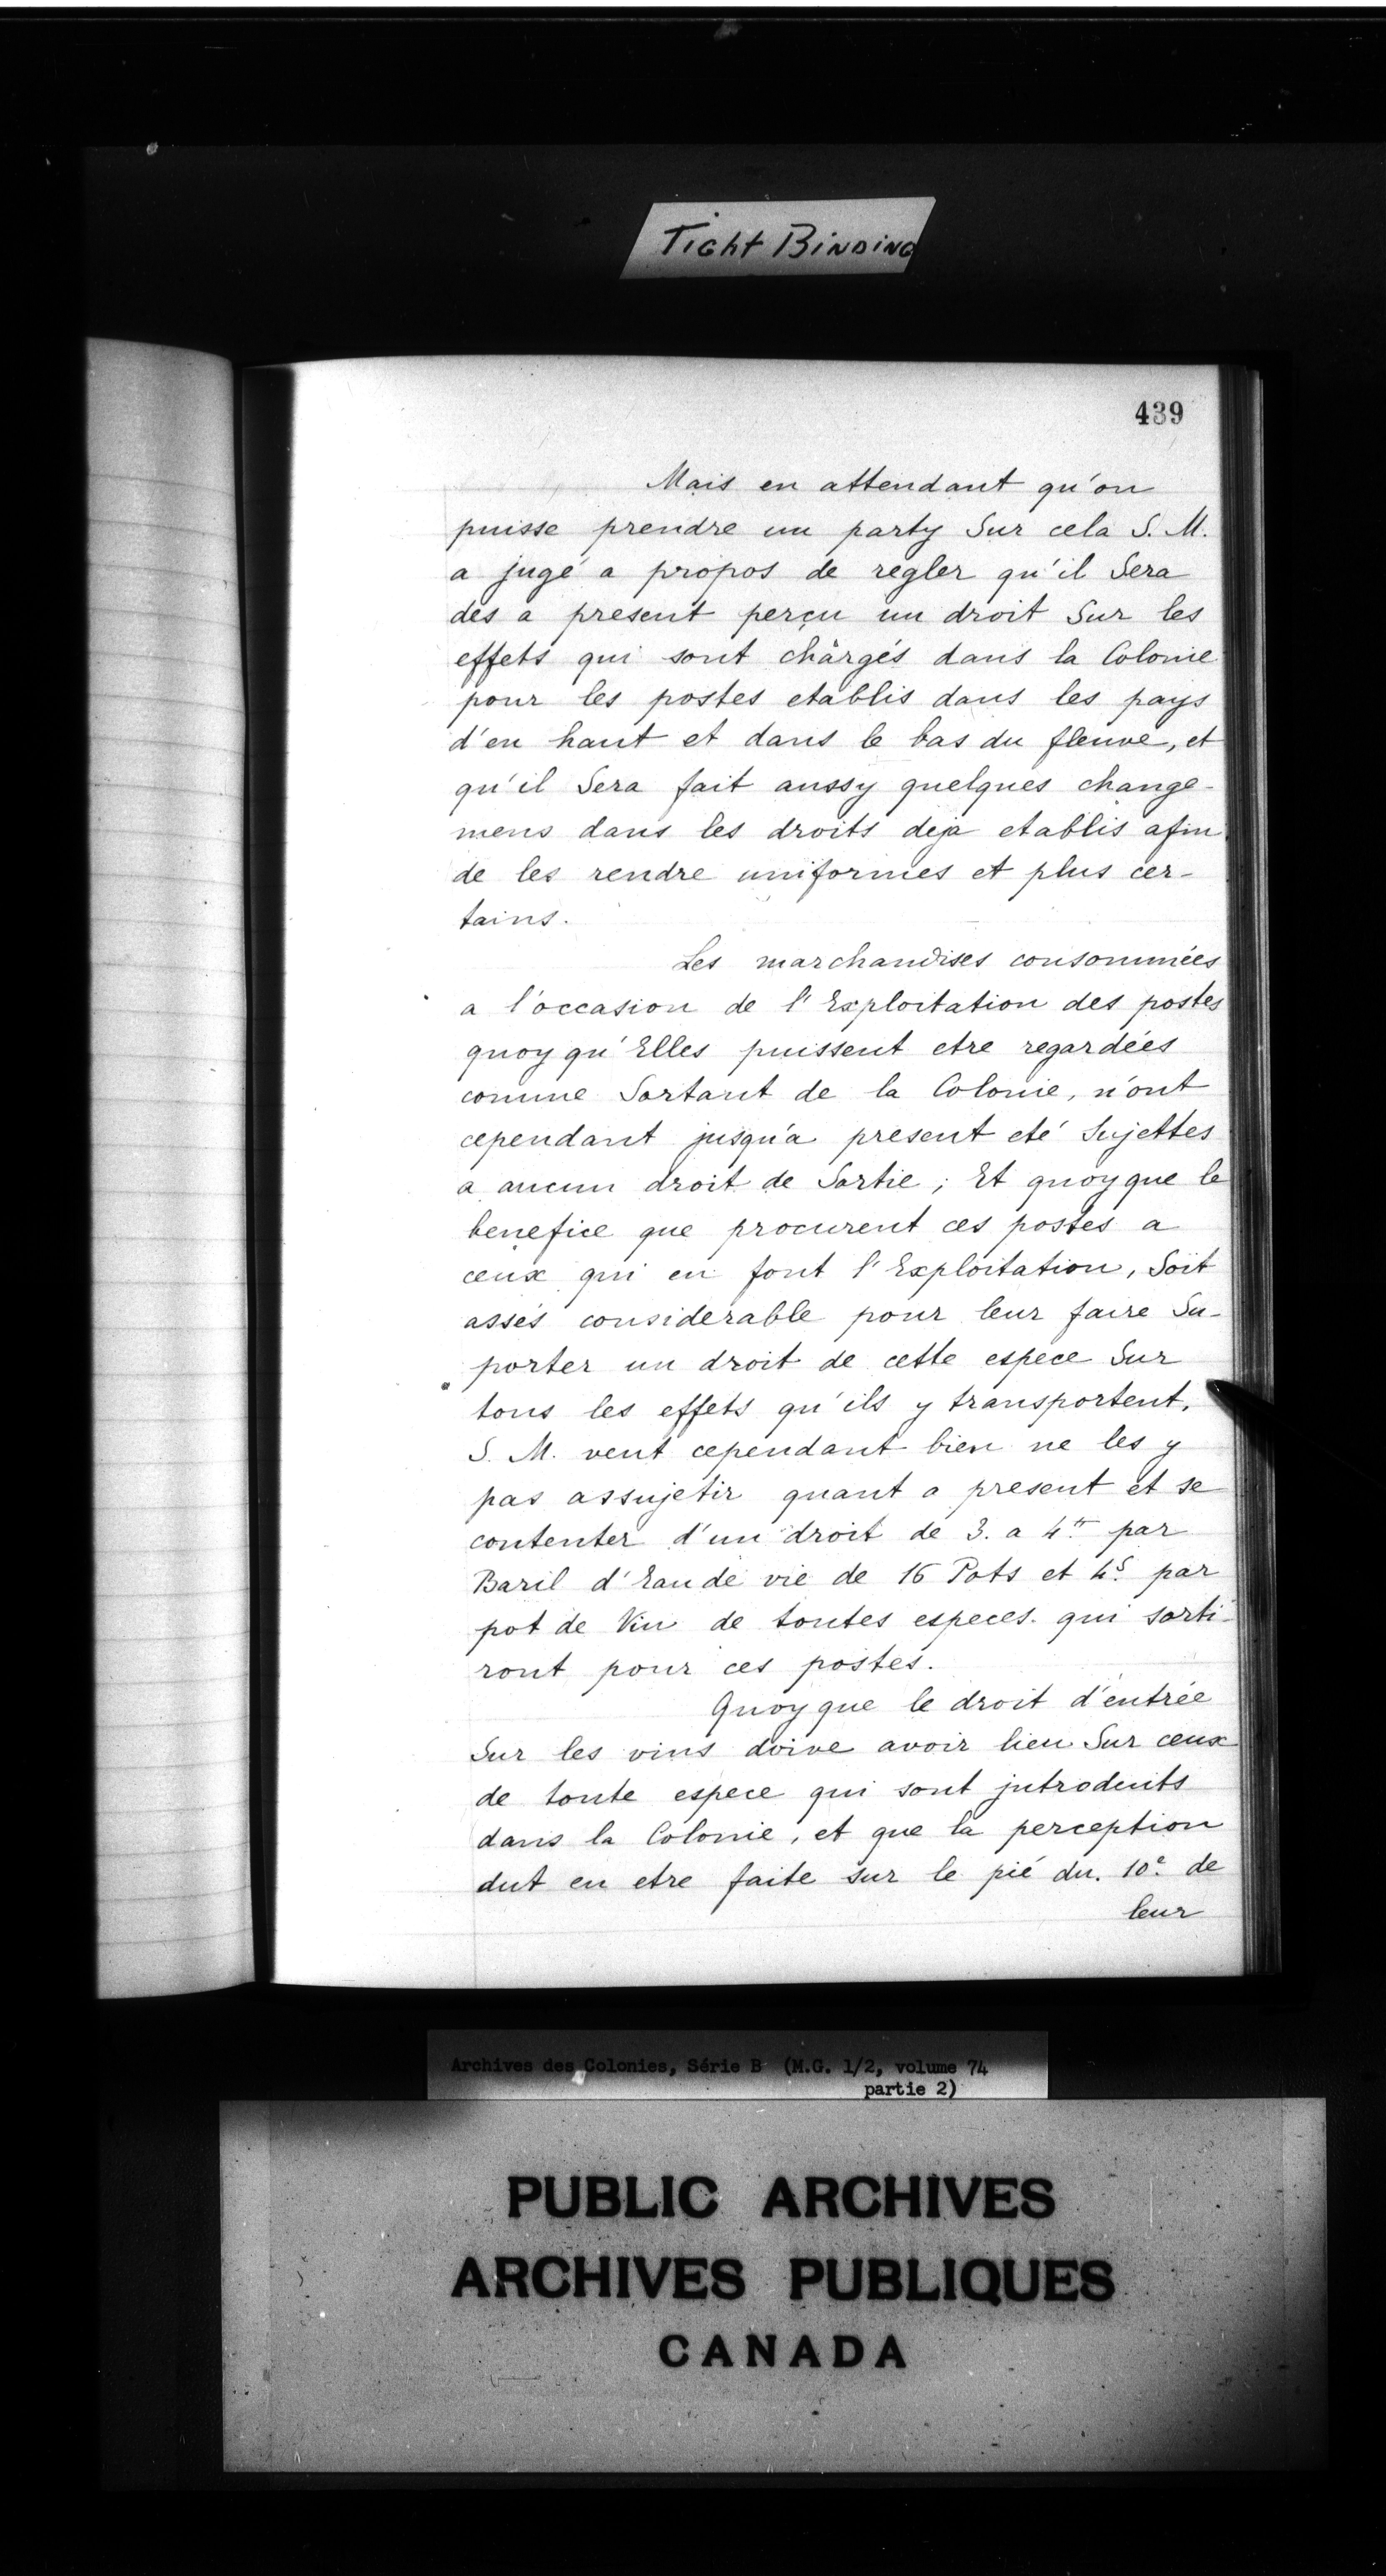 Tight Binding
439
Mais en attendant qu'on
puisse prendre un party Sur cela S. M.
a jugé a propos de regler qu'il Sera
des a present perçu un droit Sur les
effets qui sont chargés dans la Colonie
pour les postes etablis dans les pays
d'en haut et dans le bas du fleuve, et
qu'il Sera fait aussy quelques change-
mens dans les droits deja etablis afin
de les rendre uniformes et plus cer-
tains.
Les marchandises consommées
a l'occasion de l'Exploitation des postes
quoy qu'Elles puissent etre regardées
comme Sortant de la Colonie, n'ont
cependant jusqu'a present eté Sujettes
a aucun droit de Sortie; Et quoyque le
benefice que procurent ces postes a
ceux qui en font l'Exploitation, Soit
assés considerable pour leur faire Su-
porter un droit de cette espece Sur
tous les effets qu'ils y transportent,
S. M. veut cependant bien ne les y
pas assujetir quant a present et se
contenter d'un droit de 3. a 4.tt par
Baril d'Eau de vie de 16 Pots et 4.S par
pot de Vin de toutes especes qui sorti-
ront pour ces postes.
Quoyque le droit d'entrée
Sur les vins doive avoir lieu Sur ceux
de toute espece qui sont jntroduits
dans la Colonie, et que la perception
dut en etre faite sur le pié du. 10.e de
leur
Archives des Colonies, Série B (M.G. 1/2, volume 74
partie 2)
PUBLIC ARCHIVES
ARCHIVES PUBLIQUES
CANADA